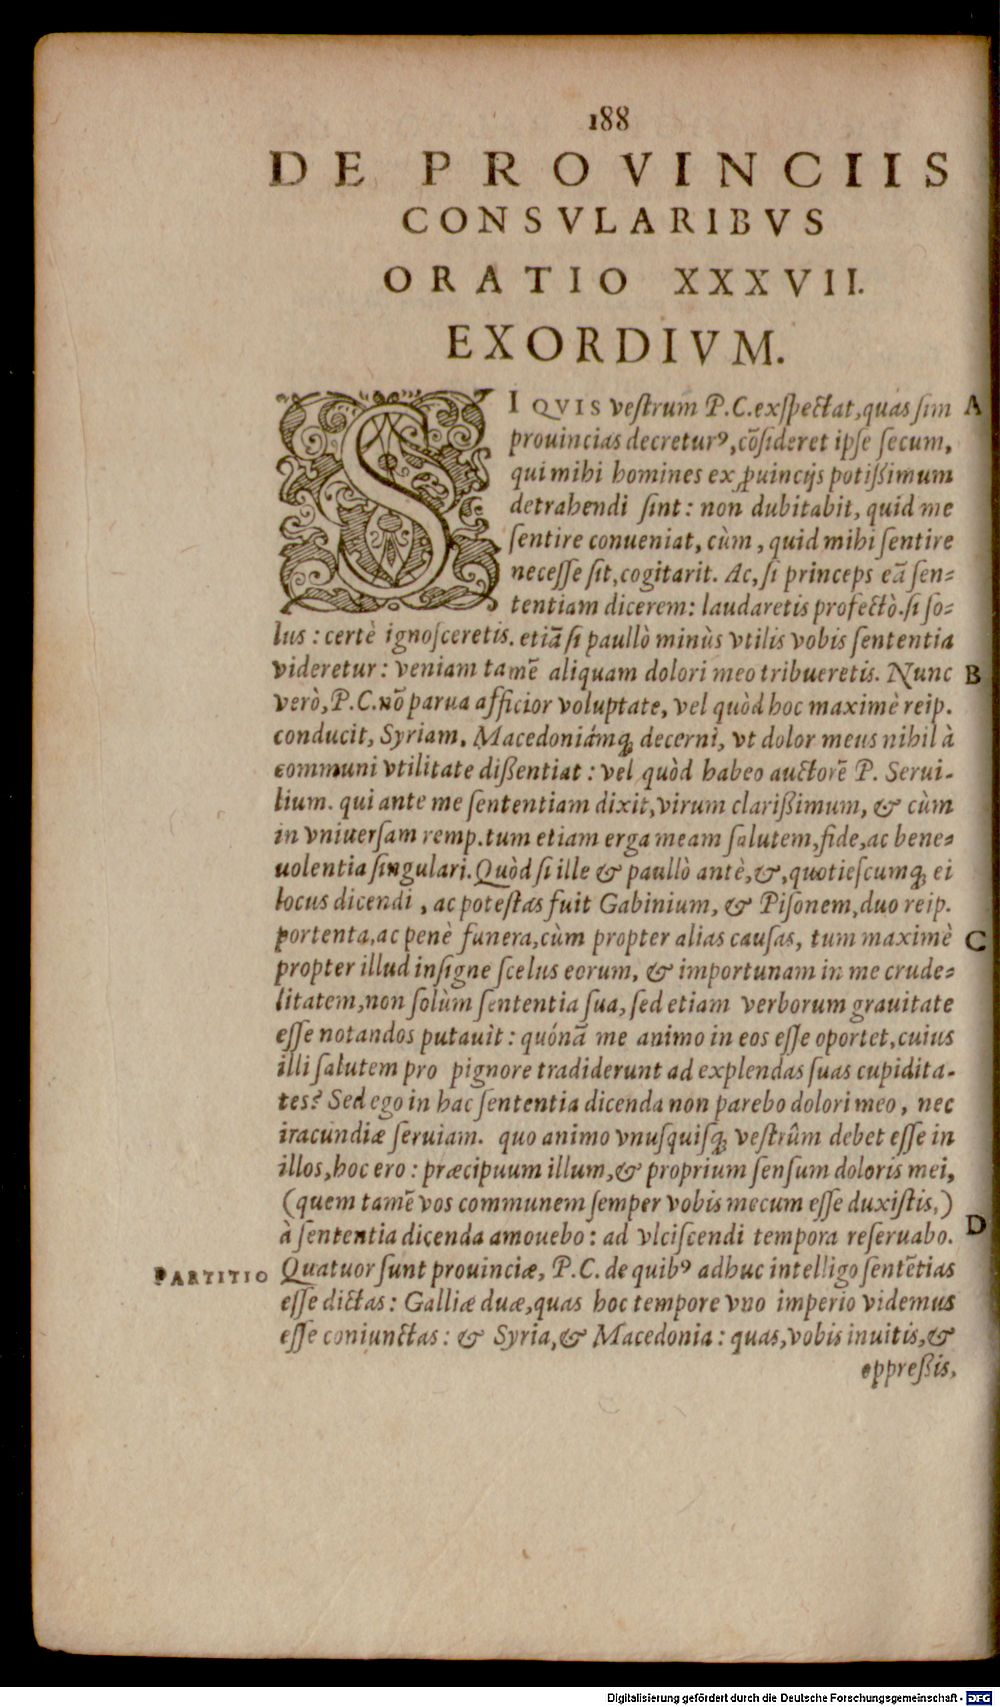 188
DE PROVINCIIS
CONSVLARIBVS
ORATIO XXXVII.
EXORDIVM.
SIQVIS vestrum P.C.exspectat,quas sim A
prouincias decreturꝰ,cõsideret ipse secum,
qui mihi homines ex ꝓuincijs potißimum
detrahendi sint: non dubitabit, quid me
sentire conueniat, cùm, quid mihi sentire
necesse sit,cogitarit. Ac, si princeps eã sen-
tentiam dicerem: laudaretis profectò.si so-
lus: certè ignosceretis. etiã si paullò minùs vtilis vobis sententia
videretur: veniam tamẽ aliquam dolori meo tribueretis. Nunc B
verò, P.C.nõ parua afficior voluptate, vel quòd hoc maximè reip.
conducit, Syriam, Macedoniámq; decerni, vt dolor meus nihil à
communi vtilitate dißentiat: vel quòd habeo auctorẽ P. Serui-
lium. qui ante me sententiam dixit, virum clarißimum, & cùm
in vniuersam remp.tum etiam erga meam salutem, fide, ac bene-
uolentia singulari. Quòd si ille & paullò antè,&,quotiescumq; ei
locus dicendi, ac potestas fuit Gabinium, & Pisonem, duo reip.
portenta,ac penè funera,cùm propter alias causas, tum maximè C
propter illud insigne scelus eorum, & importunam in me crude-
litatem,non solùm sententia sua, sed etiam verborum grauitate
esse notandos putauit: quónã me animo in eos esse oportet,cuius
illi salutem pro pignore tradiderunt ad explendas suas cupidita-
tes? Sed ego in hac sententia dicenda non parebo dolori meo, nec
iracundiæ seruiam. quo animo vnusquisq; vestrûm debet esse in
illos, hoc ero: præcipuum illum,& proprium sensum doloris mei,
(quem tamẽ vos communem semper vobis mecum esse duxistis,)
à sententia dicenda amouebo: ad vlciscendi tempora reseruabo. D
PARTITIO Quatuor sunt prouinciæ, P.C. de quibꝰ adhuc intelligo sentẽtias
esse dictas: Galliæ duæ,quas hoc tempore vno imperio videmus
esse coniunctas: & Syria,& Macedonia: quas,vobis inuitis,&
oppreßis,
Digitalisierung gefördert durch die Deutsche Forschungsgemeinschaft - DFG